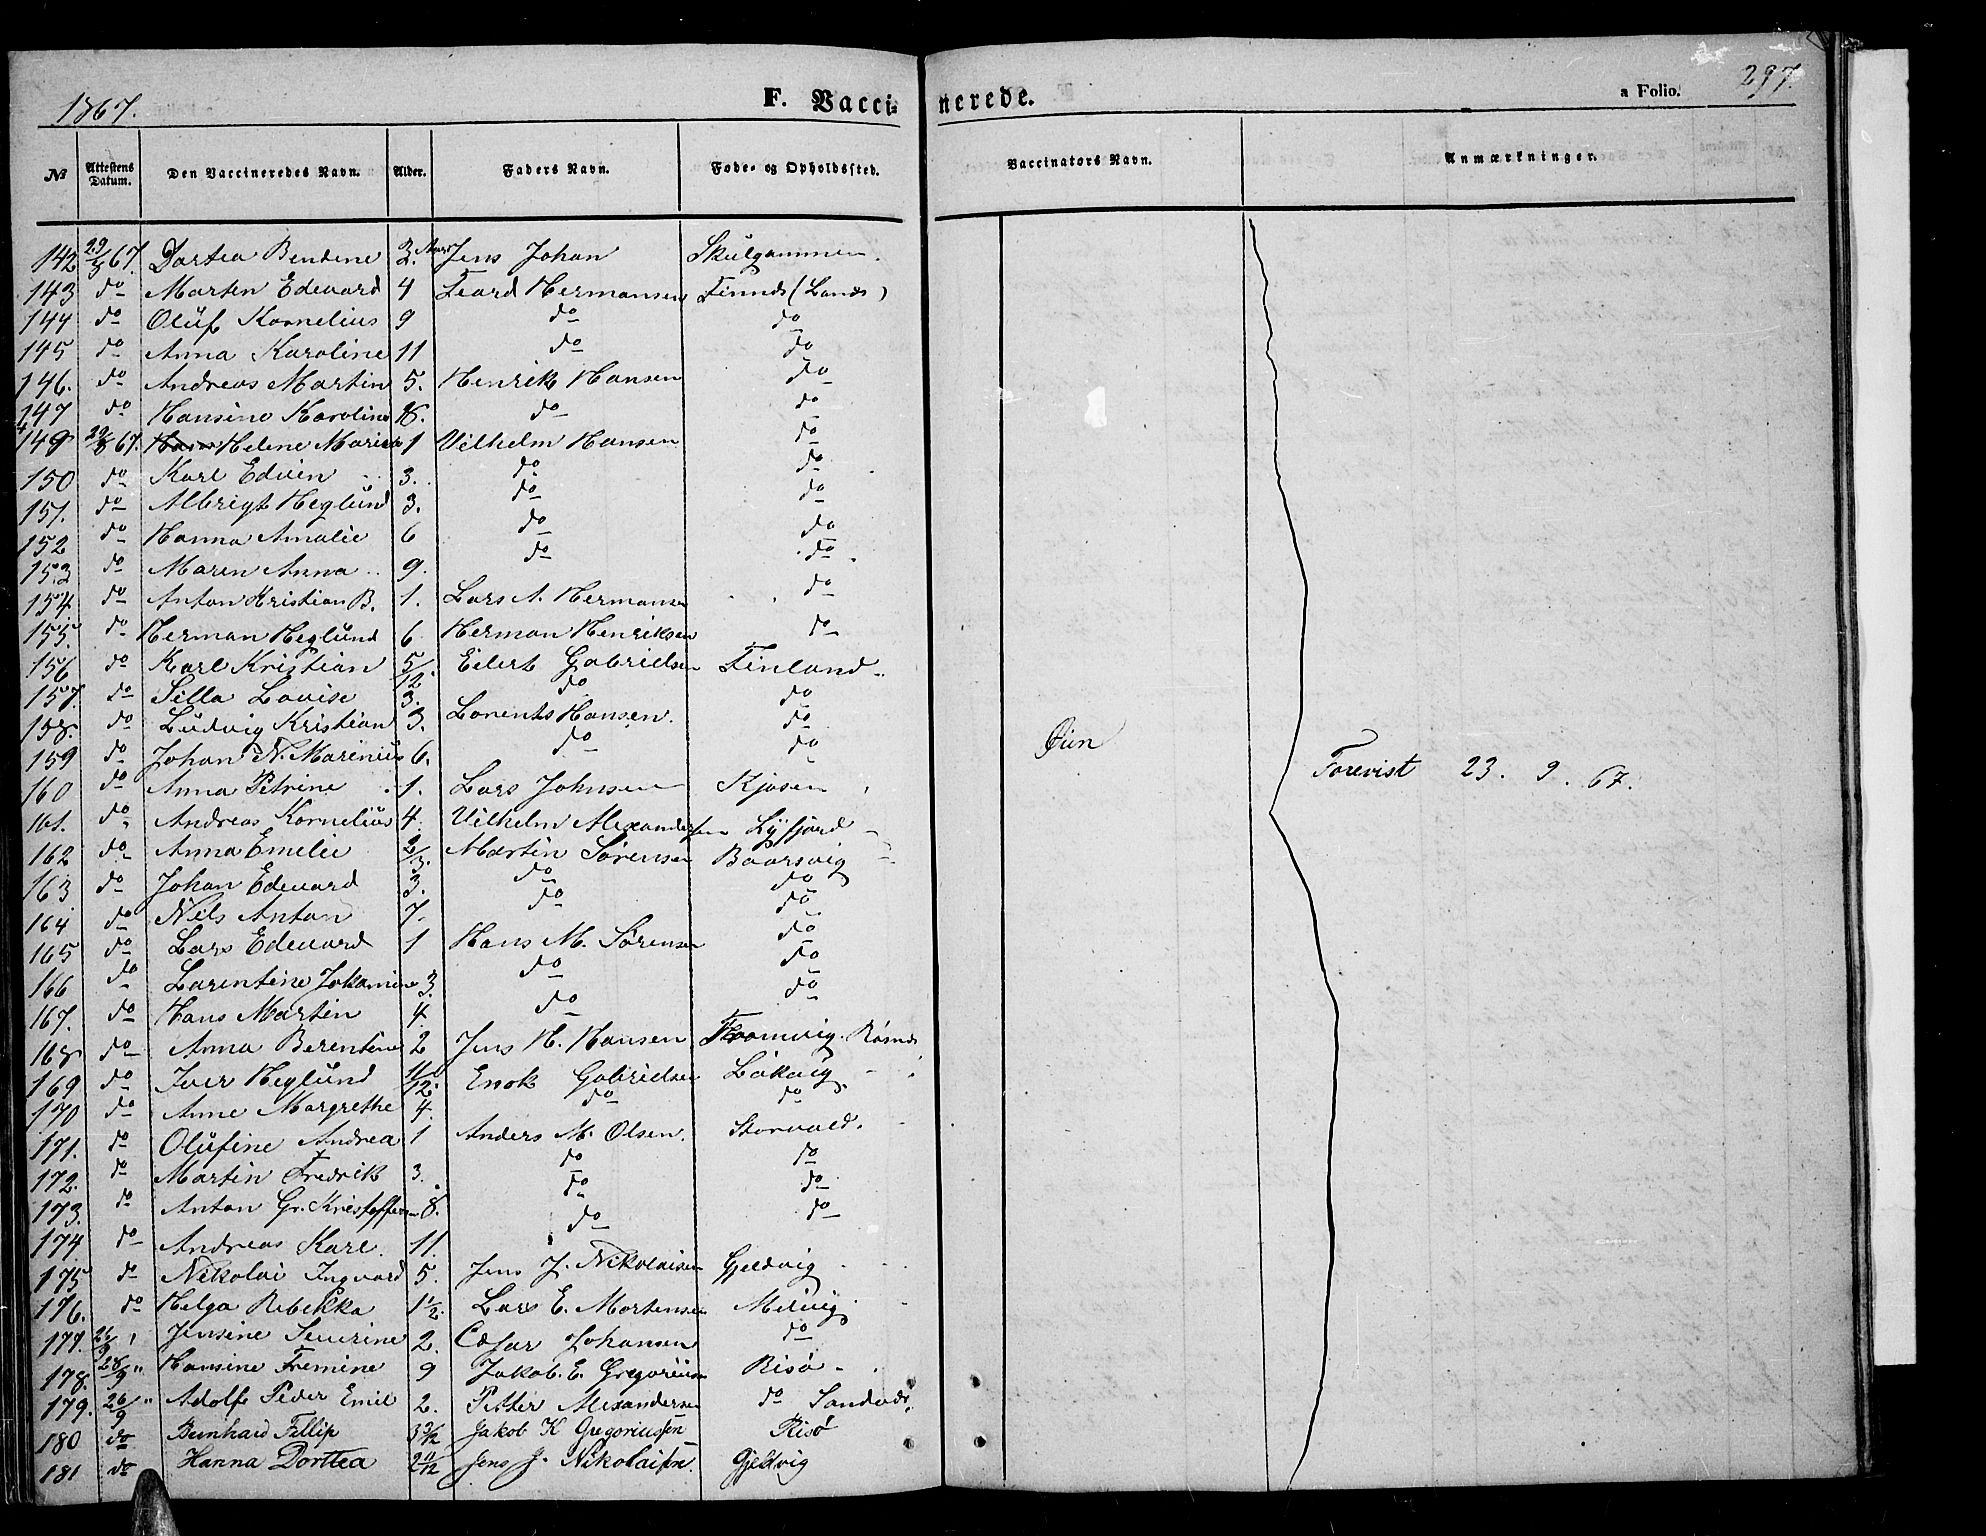 1867.
F. Vaccinerede.
a Folio. 297.
No Attestens Datum. Den Vaccineredes Navn. Alder. Faders Navn. Føde- og Opholdssted. Vaccinators Navn. Anmærkninger.
142 29/8 67. Dortea Bendene 3. Aar Jens Johan Skulgammen.
143 do Morten Edevard 4 Feard Hermansen Finnds (Lands)
144 do Oluf Kornelius 9 do do
145 do Anna Karoline 11 do do
146. do Andreas Martin 5. Henrik Hansen do
147 do Hansine Karoline 8. do do
149 29/8 67. Helene Marie 1 Vilhelm Hansen do
150 do Karl Edvin 3. do do
151. do Albrigt Heglund 3. do do
152 do Hanna Amalie 6 do do
153 do Maren Anna 9. do do
154 do Anton Kristian B. 1. Lars A. Hermansen do
155 do Herman Heglund 6 Herman Henriksen do
156 do Karl Kristian 5/12 Eilert Gabrielsen Finland
157. do Silla Lovise 3. do do
158. do Ludvig Kristian 3. Lorents Hansen. do
159 do Johan N. Marenius 6. do do
160 do Anna Petrine 1. Lars Johnsen Kjosen
161. do Andreas Kornelius 4. Vilhelm Alexandersen Lyfjord
162 do Anna Emelie 2/3. Martin Sørensen Baarsvig
163 do Johan Edevard 3. do do
164 do Nils Anton 7. do do
165 do Lars Edevard 1 Hans M. Sørensen do
166 do Larentine Johamine 3. do do
167. do Hans Martin 4. do do
168 do Anna Berentine 2 Jens H. Hansen
169 do Iver Heglund 11/12. Enok Gabrielsen Løkvig.
170 do Anne Margrethe 4. do do
171. do Olufine Andrea 1 Anders M. Olsen. Storvold.
172. do Martin Fredrik 3. do do
173. do Anton Gr. Kristoffer 8. do do
174 do Andreas Karl. 11. do
175 do Nikolai Ingvard 5. Jens J. Nikolaisen Gjeldvig
176. do Helga Rebekka 1 1/2. Lars E. Mortensen Melvig.
177. 26/9 " Jensine Severine 2. Cæsar Johansen do
178. 28/9 " Hansine Fremine 9 Jakob. E. Gregoriusen Risø
179. 26/9 " Adolf Peder Emil 2. Petter Alexandersen do
180 do Bernhard Fillip 3 9/12 Jakob K Gregoriussen Risø
181 do Hanna Dorttea 2 11/12 Jens J. Nikolaisen. Gjeldvig
Øien
Forevist 23. 9. 67.